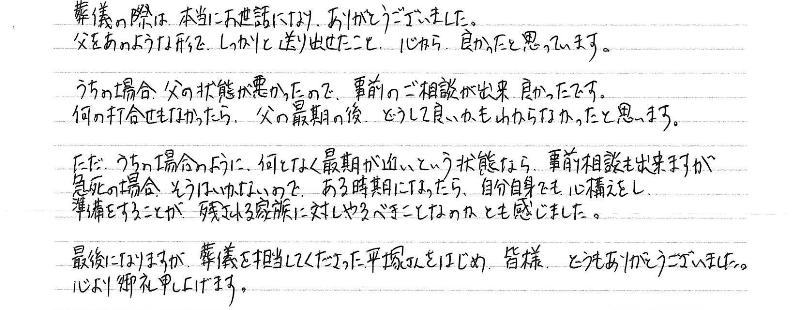 葬儀の際は、本当にお世話になり、ありがとうございました。
父をあのような形で、しっかりと送り出せたこと、心から、良かったと思っています。
うちの場合、父の状態が悪かったので、事前のご相談が出来、良かったです。
何の打合せもなかったら、父の最期の後、どうして良いかもわからなかったと思います。
ただ、うちの場合のように、何となく最期が近いという状態なら、事前相談も出来ますが
急死の場合、そうはいかないので、ある時期になったら、自分自身でも心構えをし、
準備をすることが、残される家族に対しやるべきことなのかとも感じました。
最後になりますが、葬儀を担当してくださった平塚さんをはじめ、皆様、どうもありがとうございました。
心より御礼申し上げます。